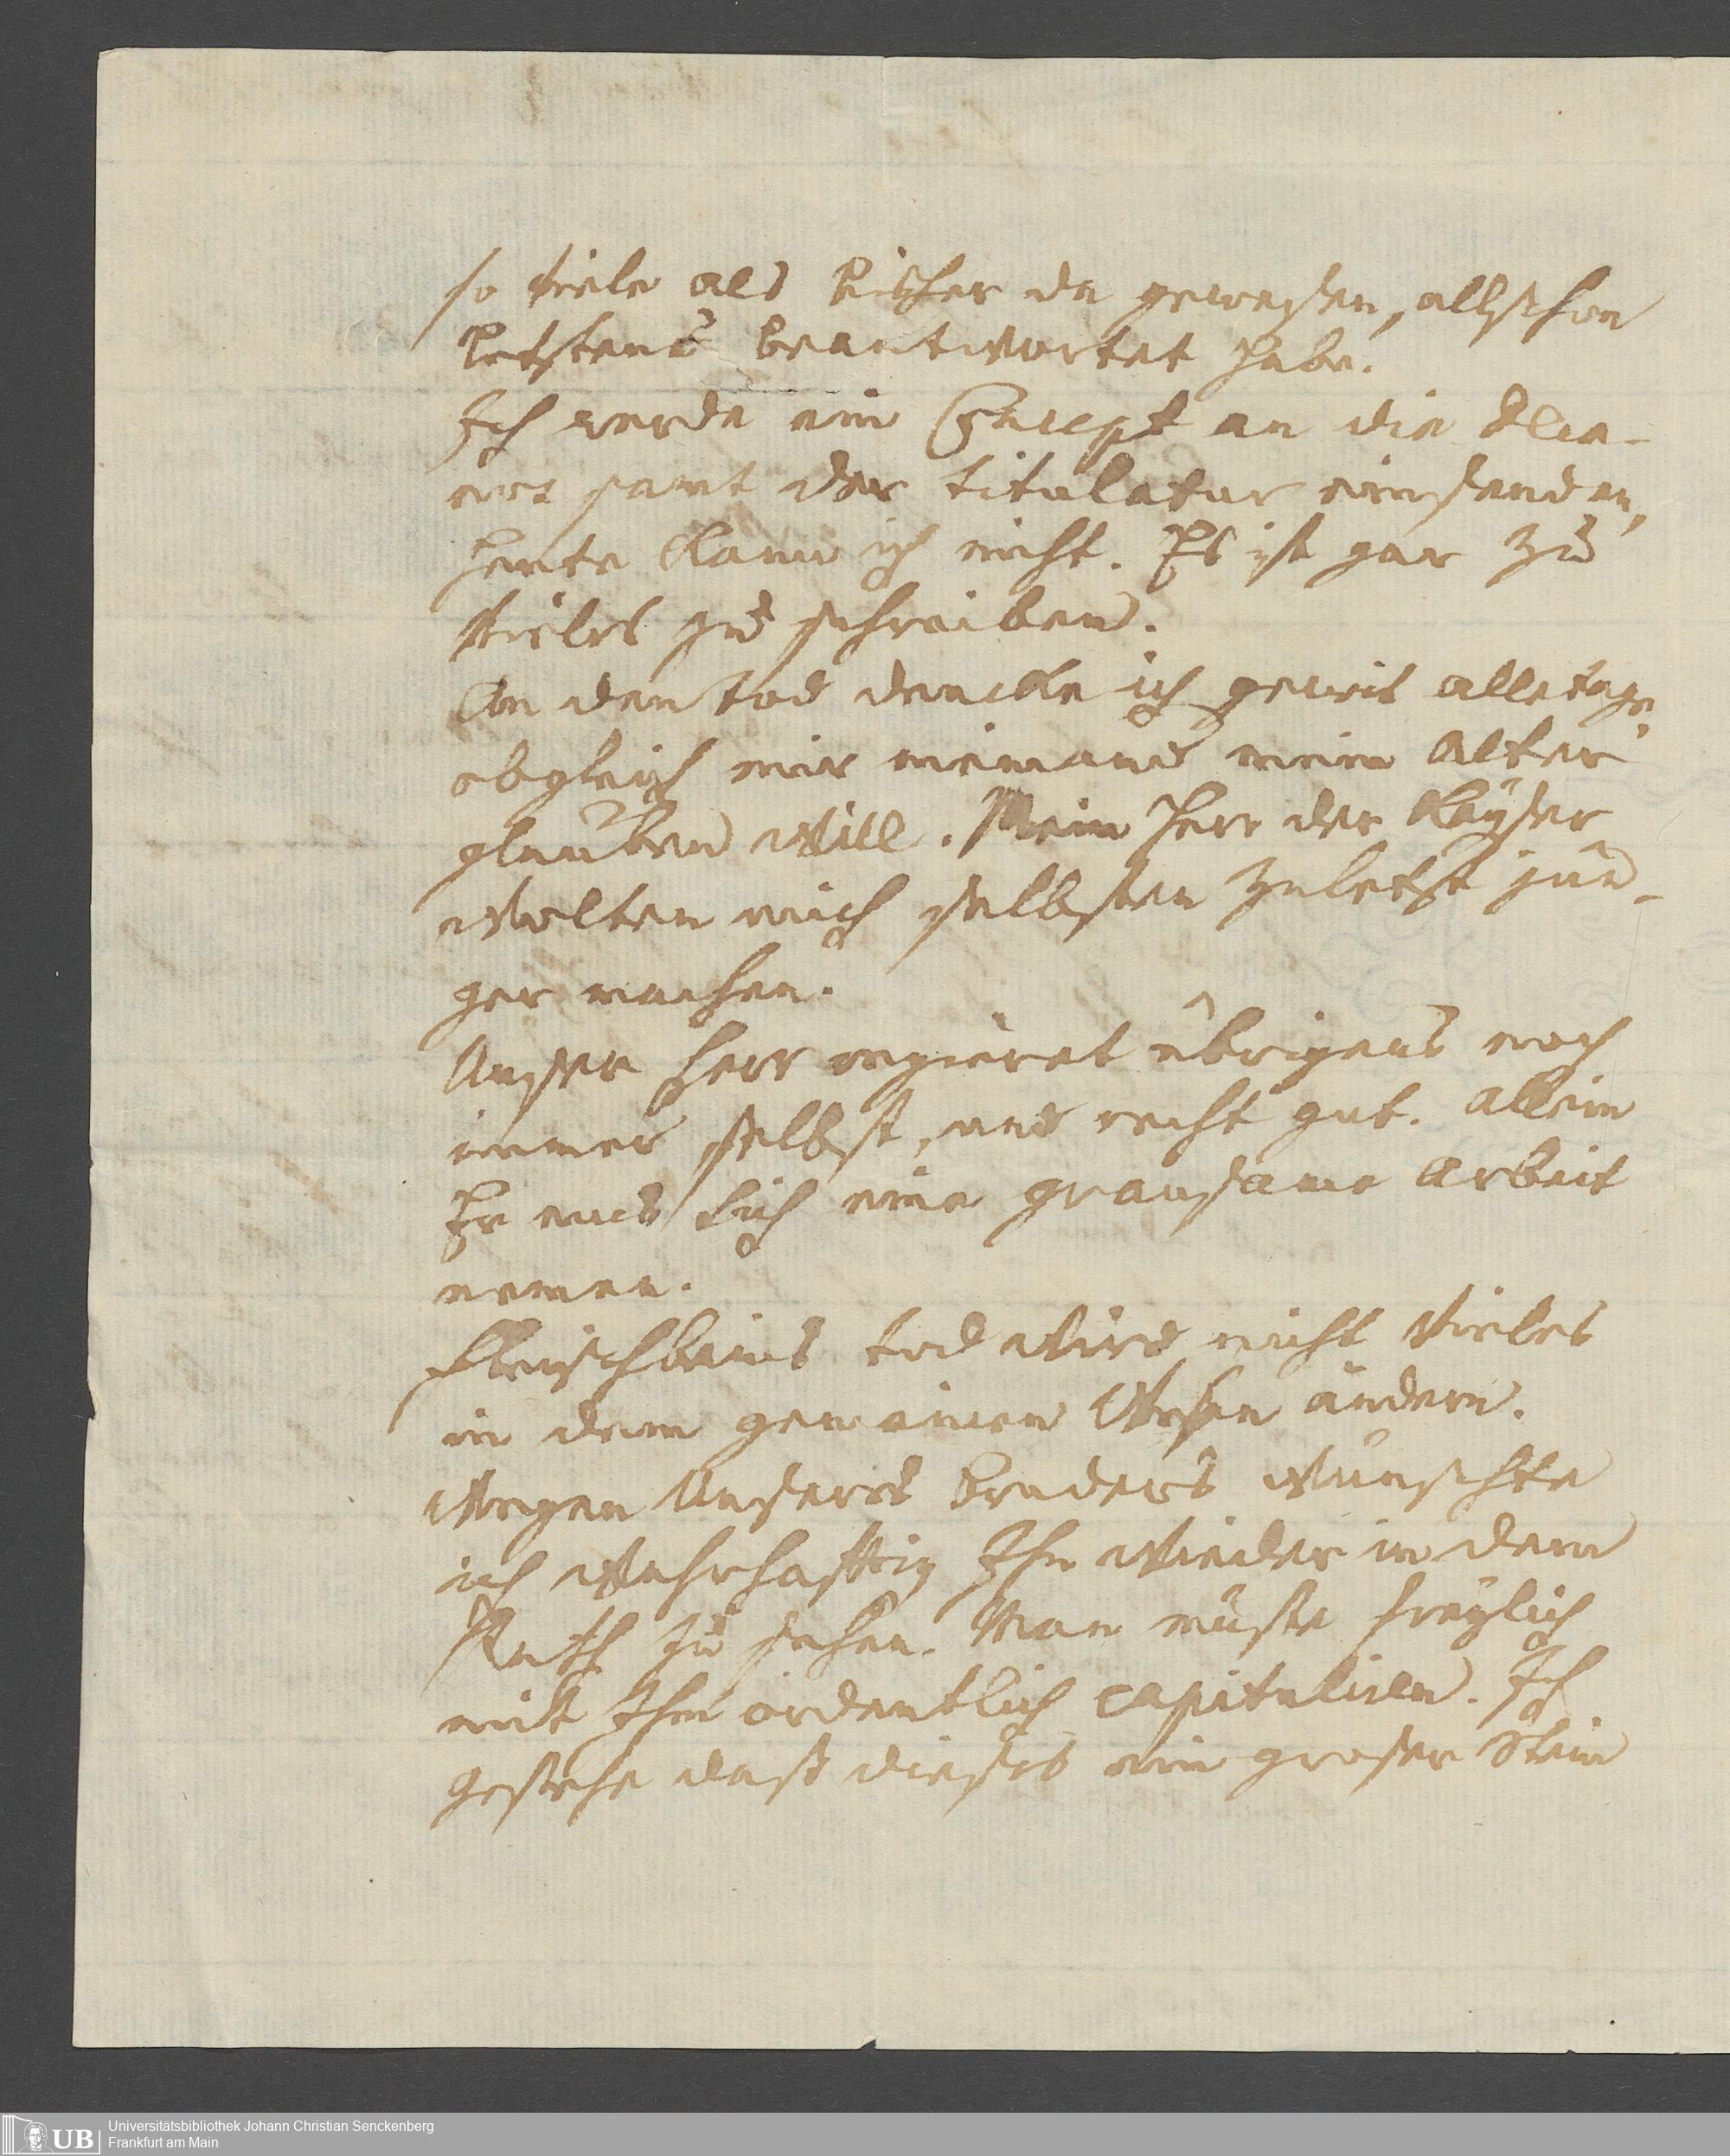 so viele als bisher da gewesen, allschon
letstens beantwortet habe.
Ich werde ein Concept an die
samt der titulatur einsenden,
heute kann ich nicht. Es ist gar zu
vieles zu schreiben.
An den tod dencke ich gewis alle tage,
obgleich mir niemand mein Alter
glauben will. Mein Herr der Kayser
wolten mich selbsten zuletst jün-
ger machen.
Unser Herr regieret übrigens noch
immer selbst, und recht gut. Allein
Er mus sich eine grausame Arbeit
nemen.
Fleischbeins tod wird nicht vieles
in dem gemeinen Wesen ändern.
Wegen Unsers bruders wünschte
ich wahrhafftig Ihn wieder in dem
Rath zu sehen. Man müste freylich
mit Ihm ordentlich capituliren. Ich
gestehe daß dieses ein groser Stein
Universitätsbibliothek Johann Christian Senckenberg
Frankfurt am Main
UB